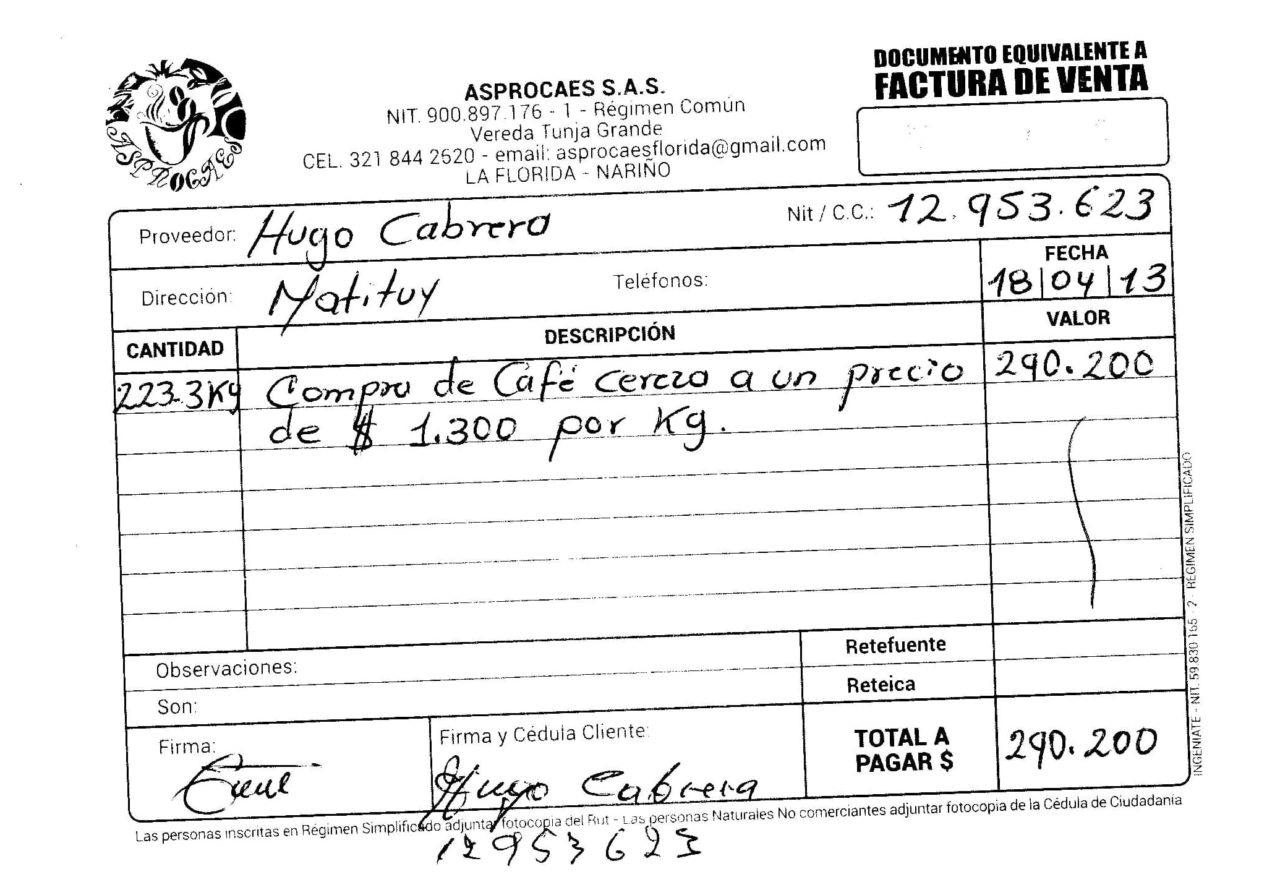 ASPROCAES
ASPROCAES S.A.S.
NIT. 900.897.176 - 1 - Régimen Común
Vereda Tunja Grande
CEL. 321 844 2520 - email: asprocaesflorida@gmail.com
LA FLORIDA - NARIÑO
DOCUMENTO EQUIVALENTE A
FACTURA DE VENTA
Proveedor: Hugo Cabrera Nit / C.C.: 12.953.623
Dirección: Matituy Teléfonos:
FECHA
18|04|13
CANTIDAD DESCRIPCIÓN VALOR
223.3Kg Compra de Café cerezo a un precio 290.200
de $ 1.300 por Kg.
Observaciones:
Son:
Retefuente
Reteica
Firma:
Firma y Cédula Cliente:
Hugo Cabrera
12953623
TOTAL A
PAGAR $ 290.200
Las personas inscritas en Régimen Simplificado adjuntar fotocopia del Rut - Las personas Naturales No comerciantes adjuntar fotocopia de la Cédula de Ciudadanía
INGENIATE - NIT. 59.830.165 - 2 - REGIMEN SIMPLIFICADO